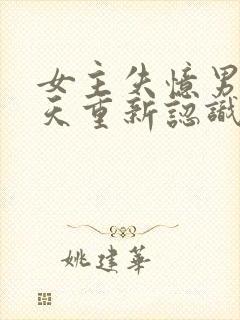 女主失憶男
天重新認識
姚建華